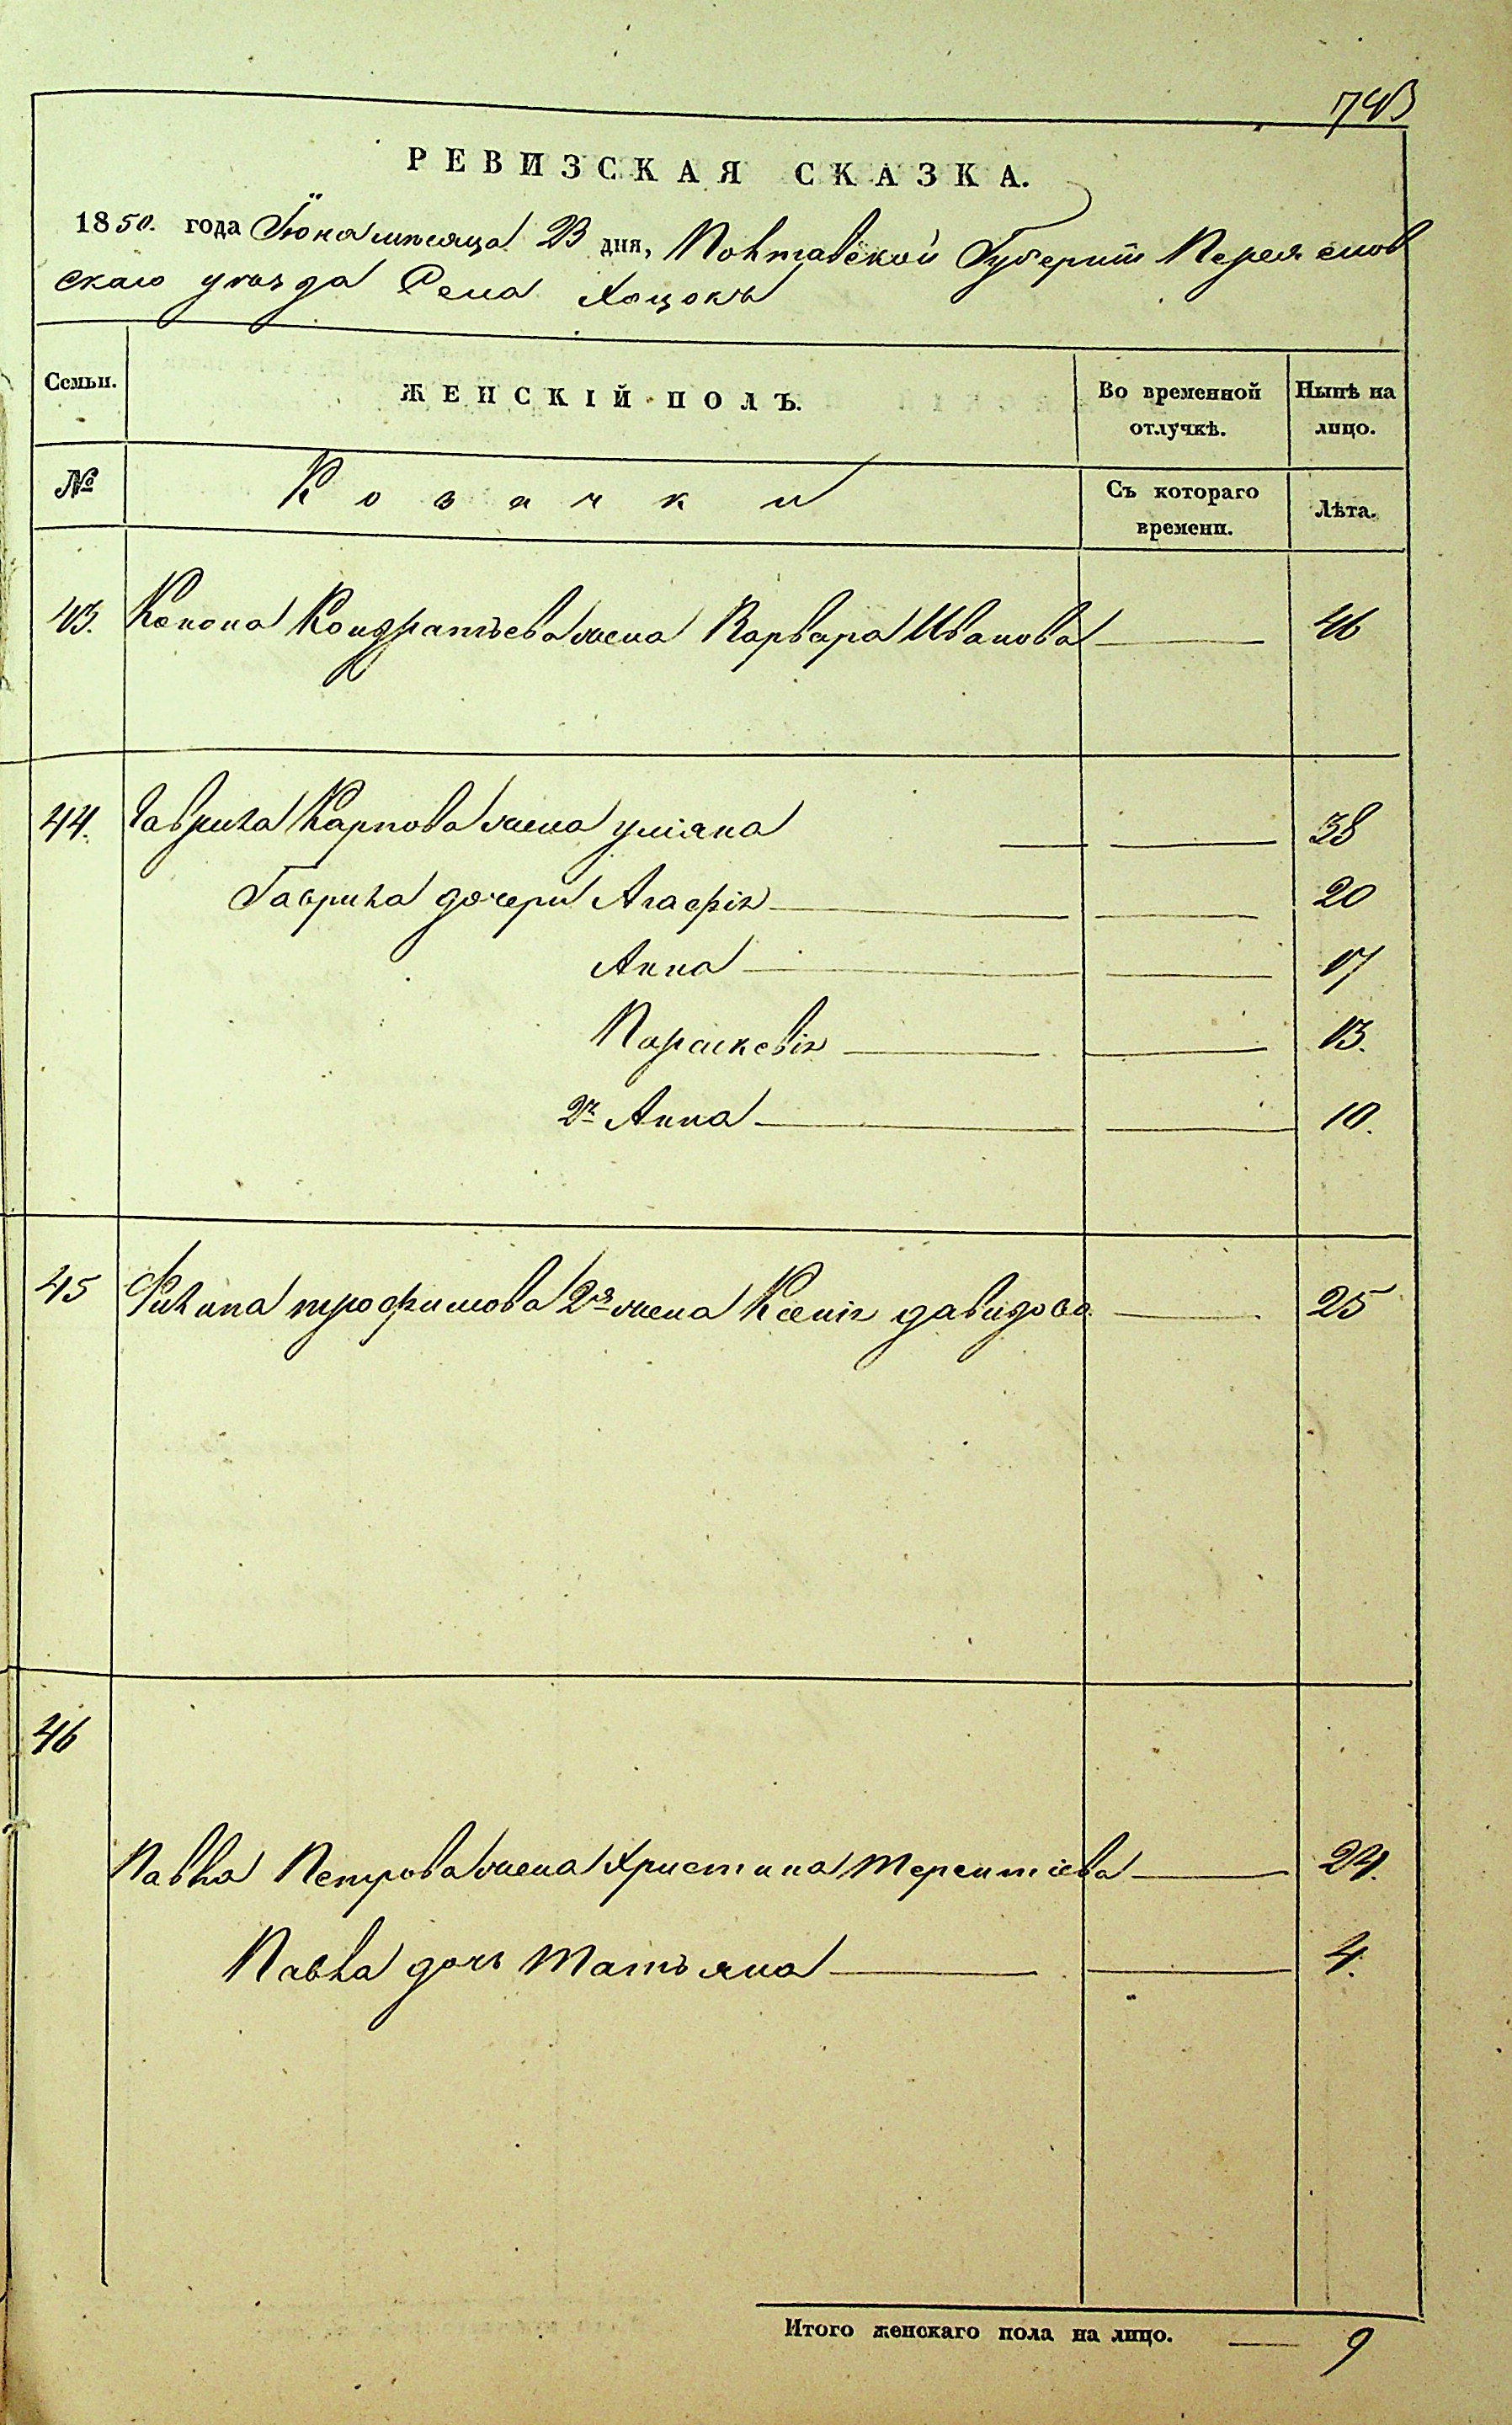 743
РЕВИЗСКАЯ СКАЗКА.
1850. года Іюня мѣсяца 23 дня, Полтавской Губерніи Переяслов
скаго уѣзда Села Хоцокъ
Семьи. ЖЕНСКІЙ ПОЛЪ. Во временной отлучкѣ. Нынѣ на лицо.
№ Козачки Съ котораго времени. Лѣта.
43. Конона Кондратьева жена Варвара Иванова 46
44. Гаврила Карпова жена уліяна 38
Гаврила дочери Агафія 20
Анна 17
Параскевія 13.
2я Анна 10.
45 Филипа трофимова 2я жена Ксенія давидова 25
46
Павла Петрова жена Христина Терентіева 24.
Павла дочь Татьяна 4.
Итого женскаго пола на лицо. 9